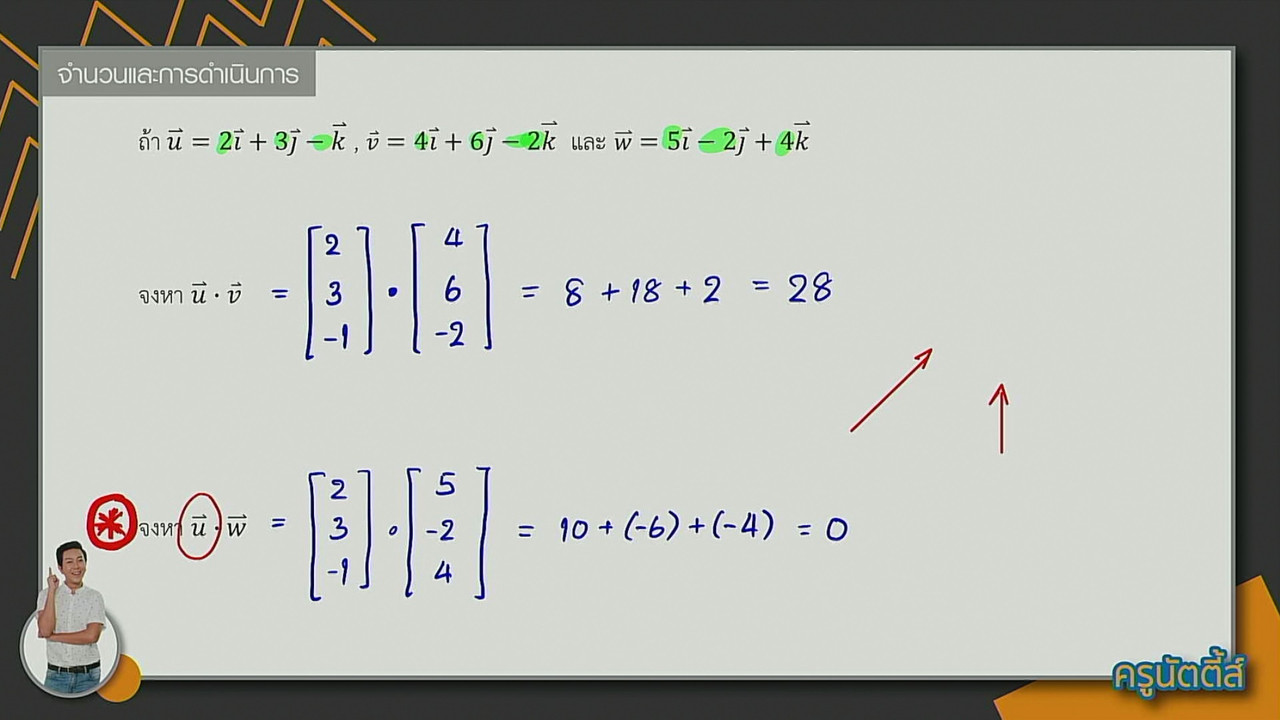 จำนวนและการดำเนินการ
ถ้า u⃗ = 2i⃗ + 3j⃗ − k⃗ , v⃗ = 4i⃗ + 6j⃗ − 2k⃗ และ w⃗ = 5i⃗ − 2j⃗ + 4k⃗
จงหา u⃗ · v⃗ = [2 3 -1] · [4 6 -2] = 8 + 18 + 2 = 28
* จงหา u⃗ · w⃗ = [2 3 -1] · [5 -2 4] = 10 + (-6) + (-4) = 0
ครูนัตตี้ส์